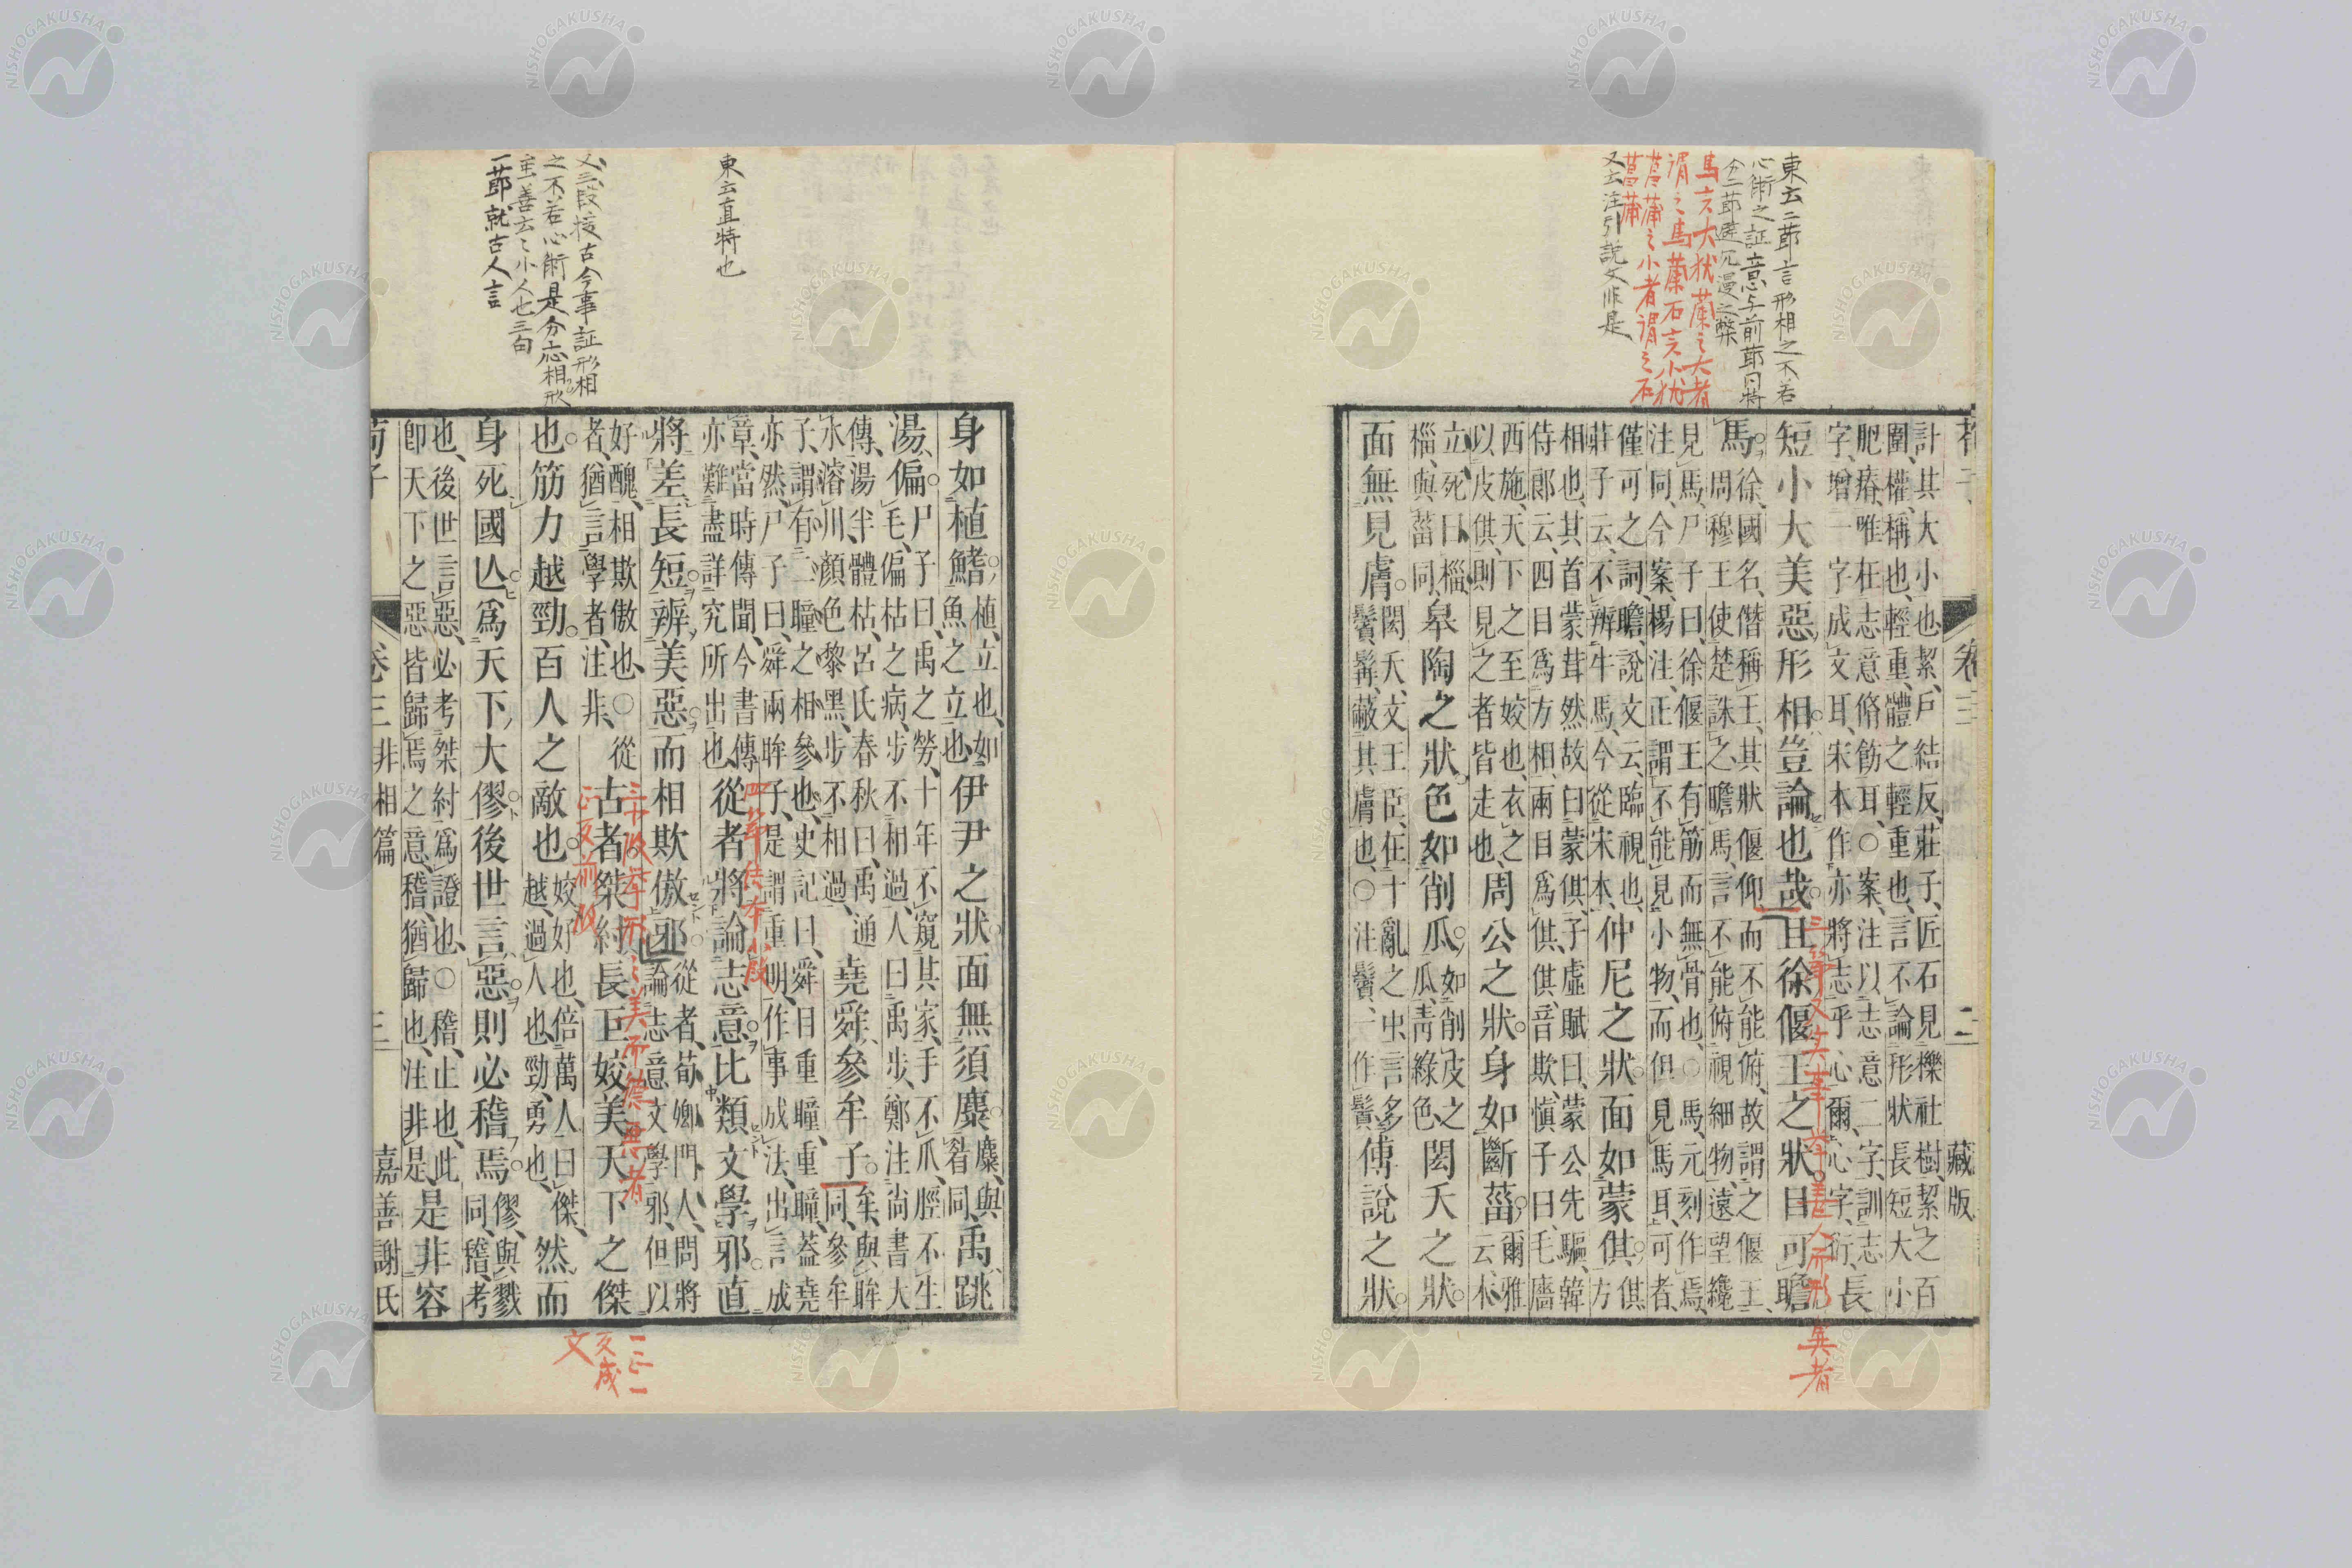 東云二節言形相之不若
心術之証意与前節同特
分二節避冗漫之弊
馬言大猶蘭之大者
謂之馬蘭石言小猶
菖蒲之小者謂之石
菖蒲
又云注引説文非是
荀子 卷三 二 藏版
計其大小也、絜、戶結反、莊子、匠石見櫟社樹、絜之百
圍、權、稱也、輕重、體之輕重也、言不論形狀長短大小
肥瘠、唯在志意脩飭耳、○案、注以志意二字、訓志
字、增一字成文耳、宋本作亦將志乎心爾、心字衍、長
短小大美惡形相豈論也哉且徐偃王之狀目可瞻
三節又矢筆辛善人而形異者
馬徐、國名、僭稱王、其狀偃仰而不能俯、故謂之偃王、
周穆王使楚誅之、瞻馬、言不能俯視細物、遠望纔
見馬、尸子曰、徐偃王有筋而無骨也、○馬、元刻作焉、
注同、今案、楊注、正謂不能見小物、而但見馬耳、可者、
僅可之詞、瞻、說文云、臨視也、
莊子云、不辨牛馬、今從宋本、
仲尼之狀面如蒙倛倛方
相也、其首蒙茸然、故曰蒙倛、子虛賦曰、蒙公先驅、韓
侍郎云、四目爲方相、兩目爲倛、倛音欺、愼子曰、毛廧
西施、天下之至姣也、衣之
以皮倛、則見之者皆走也、
周公之狀身如斷菑爾雅云、木
立死曰椔、椔與菑同、
皋陶之狀色如削瓜如削皮之瓜、靑綠色、閎夭之狀
面無見膚閎夭、文王臣、在十亂之中、言多
鬢髯、蔽其膚也、○注鬢、一作鬚、
傅說之狀
東云直特也
又云三段按古今事証形相
之不若心術是分志相形
主善云云小人也三句
一節就古人言
身如植鰭植、立也、如魚之立也、伊尹之狀面無須麋麋、與眉同、禹跳
湯偏尸子曰、禹之勞、十年不窺其家、手不爪、脛不生
毛、偏枯之病、步不相過、人曰禹步、鄭注尙書大
傳、湯半體枯、呂氏春秋曰、禹通
水濬川、顏色黎黑、步不相過、
堯舜參牟子牟、與眸同、參牟
子、謂有二瞳之相參也、史記曰、舜目重瞳、重瞳、蓋堯
亦然、尸子曰、舜兩眸子、是謂重明、作事成法、出言成
章、當時傳聞、今書傳
亦難盡詳究所出也、
從者將論志意比類文學邪直
四節結本小段
將差長短辨美惡而相欺傲邪從者、荀卿門人、問將
論志意文學邪、但以
好醜、相欺傲也、○
者、猶言學者、注非、
從古者桀紂長巨姣美天下之傑
三節段擧形之美而德惡者
正反前段
一正一
反成
文
也筋力越勁百人之敵也姣、好也、倍萬人曰傑、
越、過人也、勁、勇也、
然而
身死國亾爲天下大僇後世言惡則必稽焉僇、與戮同、稽、考
也、後世言惡、必考桀紂爲證也、○稽、止也、此
卽天下之惡皆歸焉之意、稽、猶歸也、注非是、
是非容
荀子 卷三 非相篇 三 嘉善謝氏